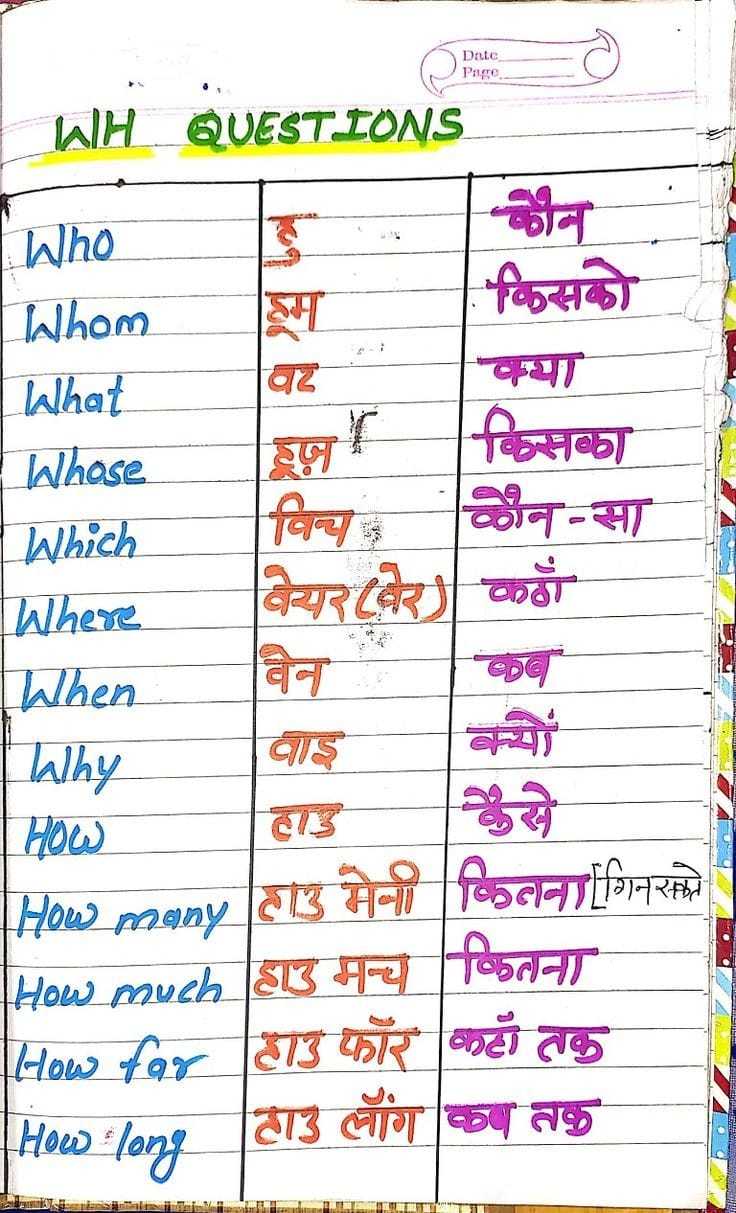 Date
Page
WH QUESTIONS
Who हु कौन
Whom हूम किसको
What वट क्या
Whose हूज़ किसका
Which विच कौन-सा
Where वेयर (वेर) कहाँ
When वेन कब
Why वाइ क्यों
How हाउ कैसे
How many हाउ मेनी कितना [गिन सकते
How much हाउ मच कितना
How far हाउ फॉर कहाँ तक
How long हाउ लॉंग कब तक